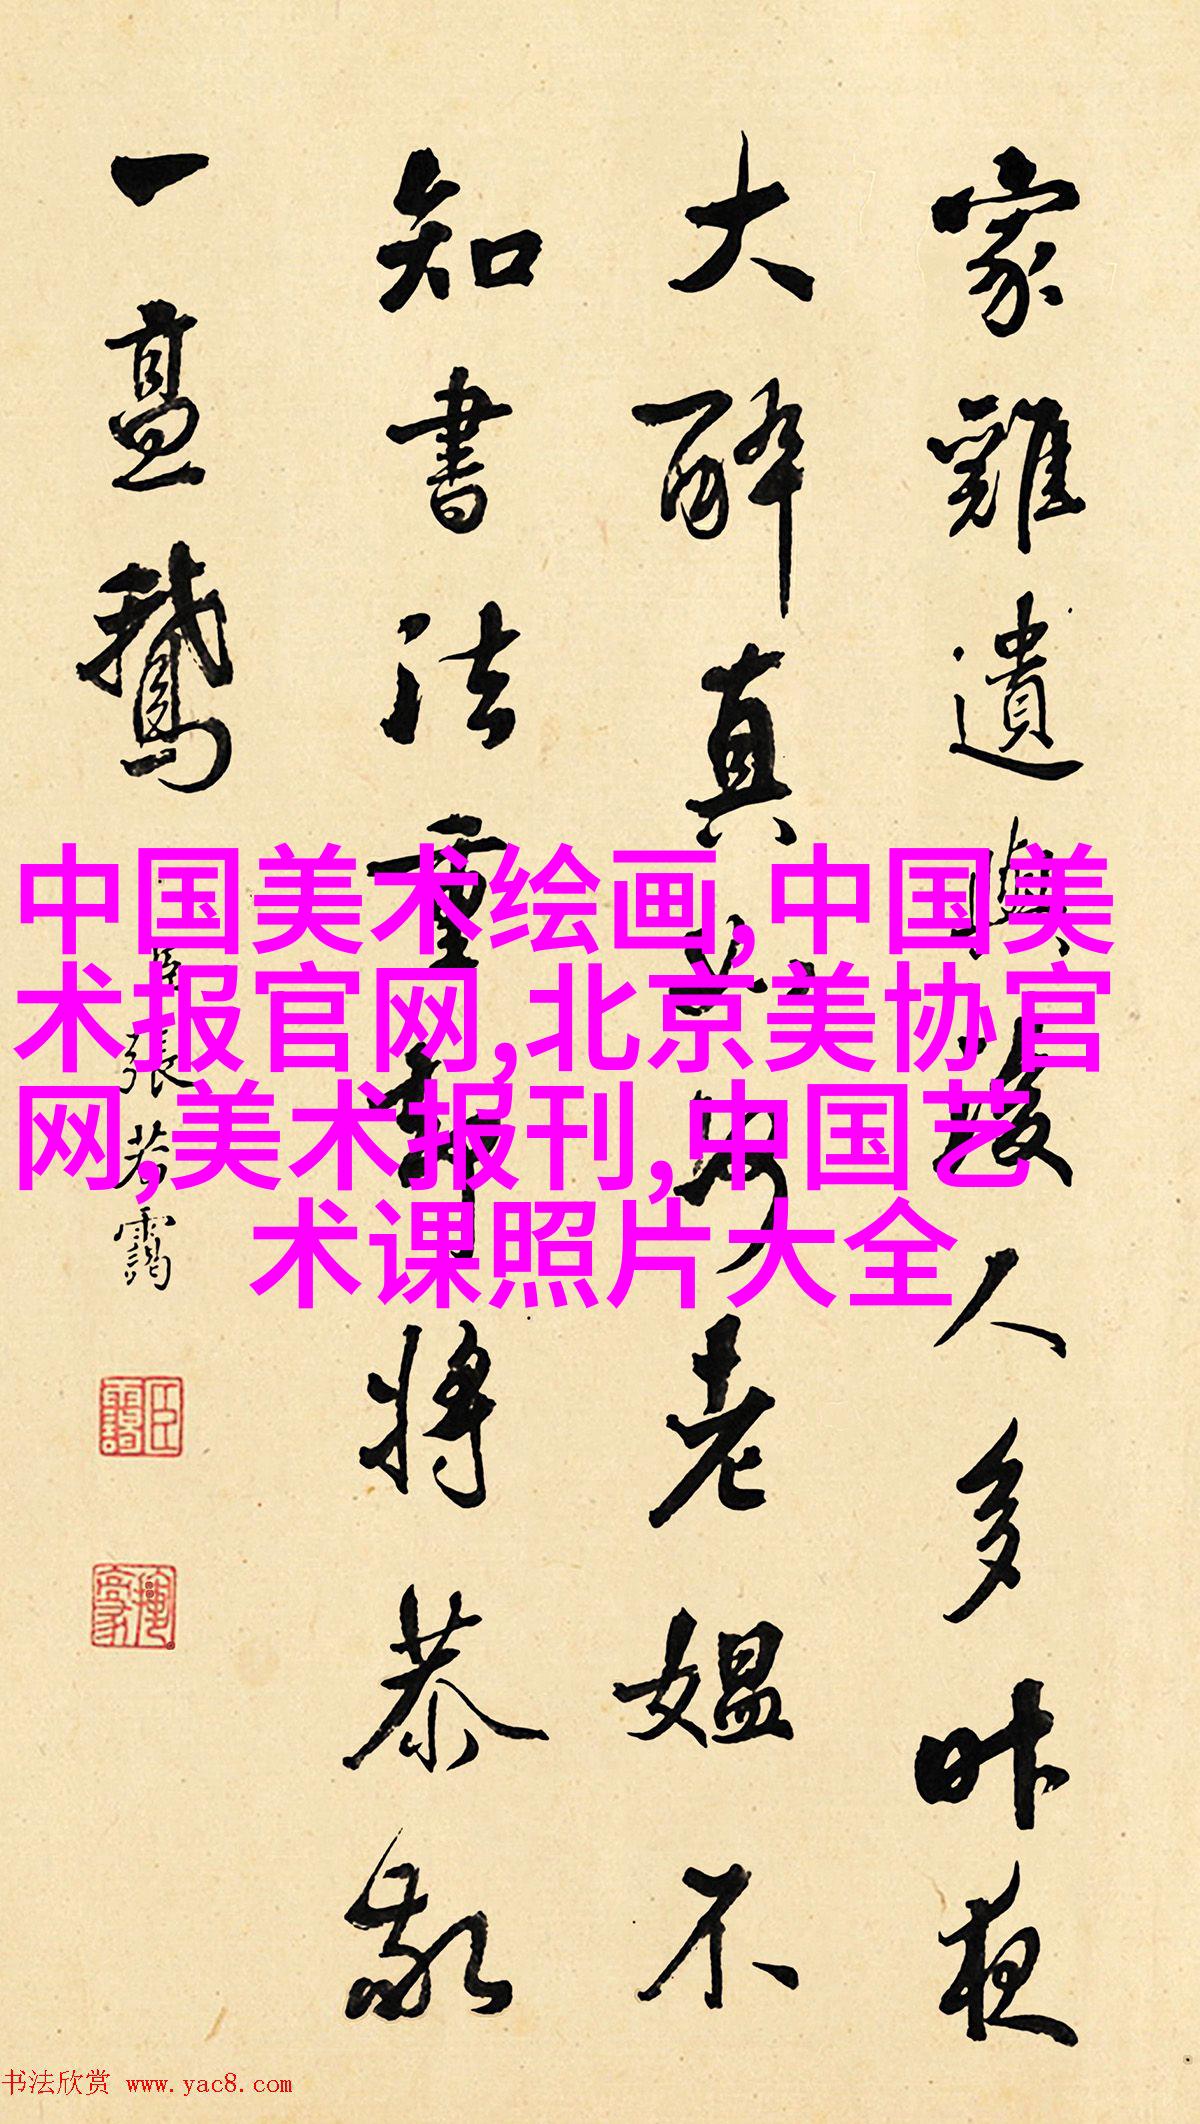 家雞遺與人多昨夜
大醉真老媼不
知書法重將恭敬
一鵝
臣張若靄
中国美术绘画,中国美
术报官网,北京美协官
网,美术报刊,中国艺
术课照片大全
书法欣赏 www.yac8.com